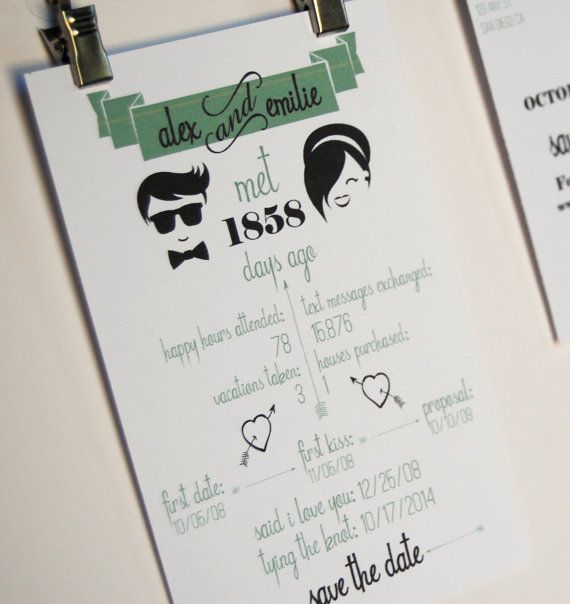 alex and emilie
met
1858
days ago
happy hours attended:
78
text messages exchanged:
15,876
vacations taken:
3
houses purchased:
1
first date:
10/05/08
first kiss:
11/05/08
proposal:
10/10/08
said i love you: 12/25/08
tying the knot: 10/17/2014
save the date
123 ANY ST
SAN DIEGO CA
OCTO
sa
Fo
www